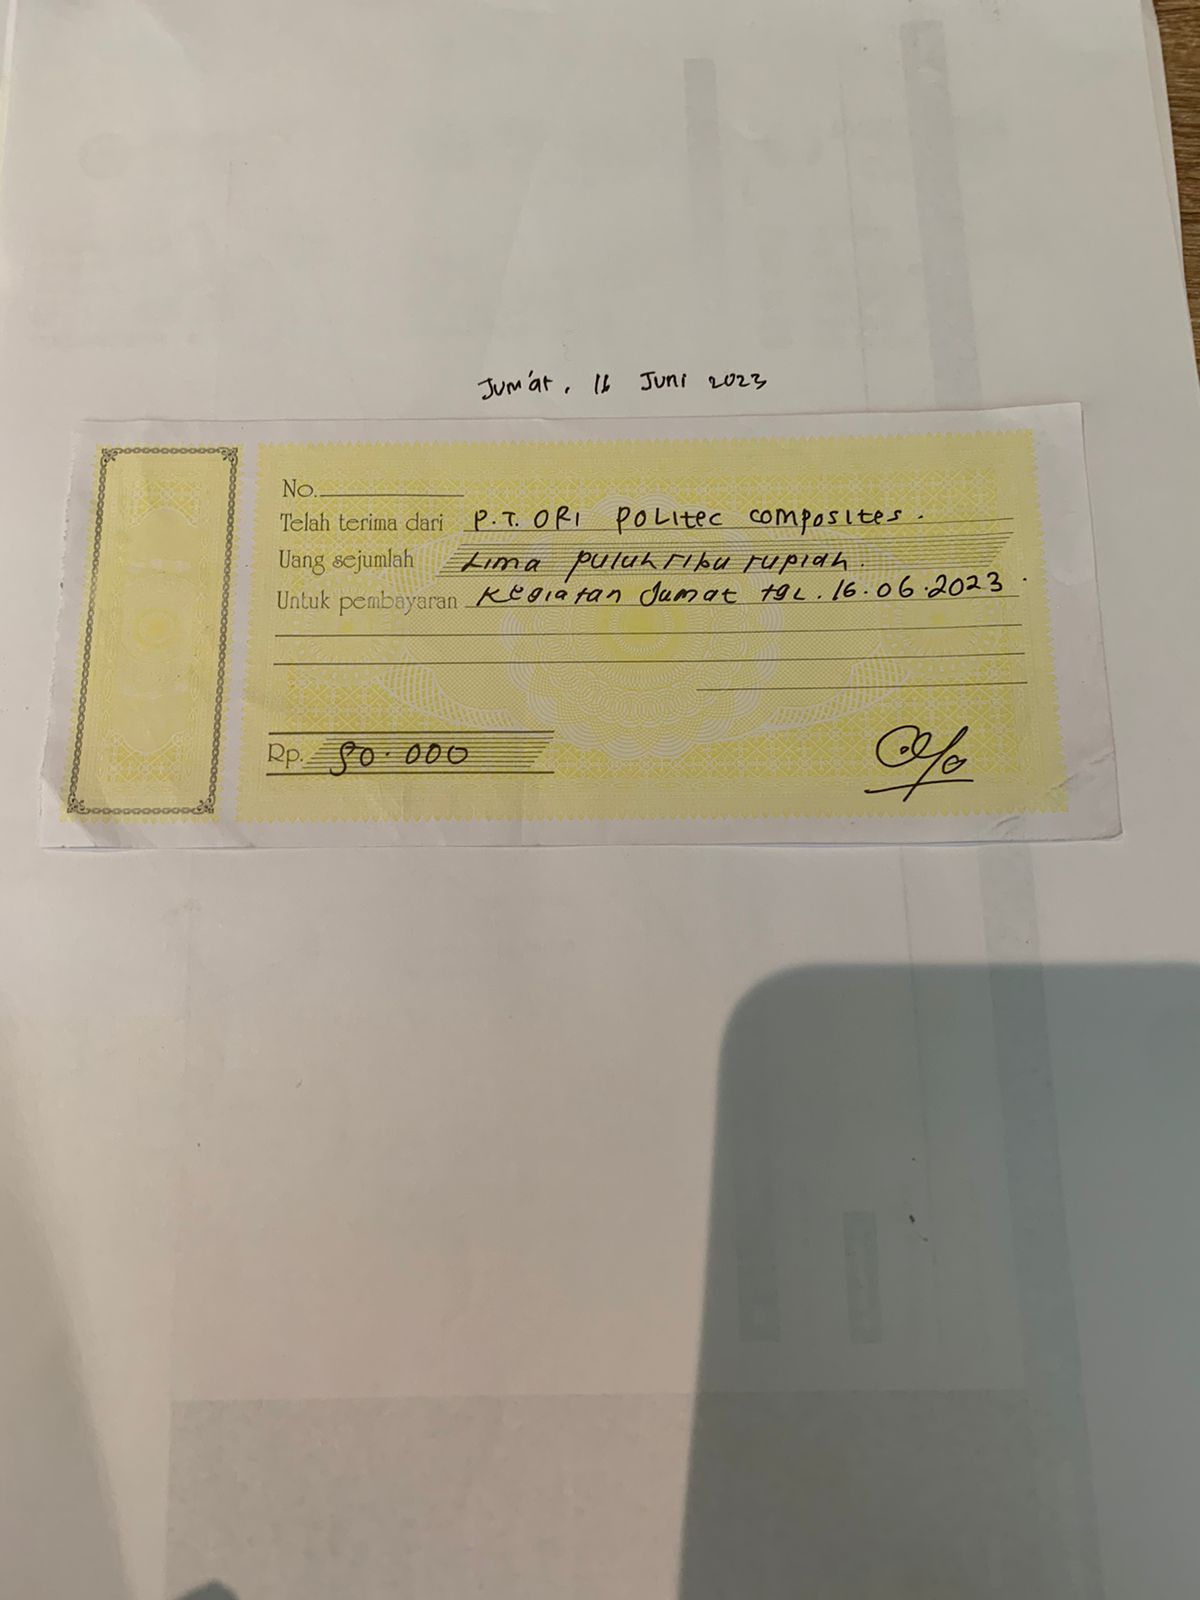 Jum'at, 16 Juni 2023
No.
Telah terima dari P.T. ORI POLITEC COMPOSITES.
Uang sejumlah Lima puluh ribu rupiah.
Untuk pembayaran Kegiatan Jumat tgl. 16.06.2023.
Rp. 50.000